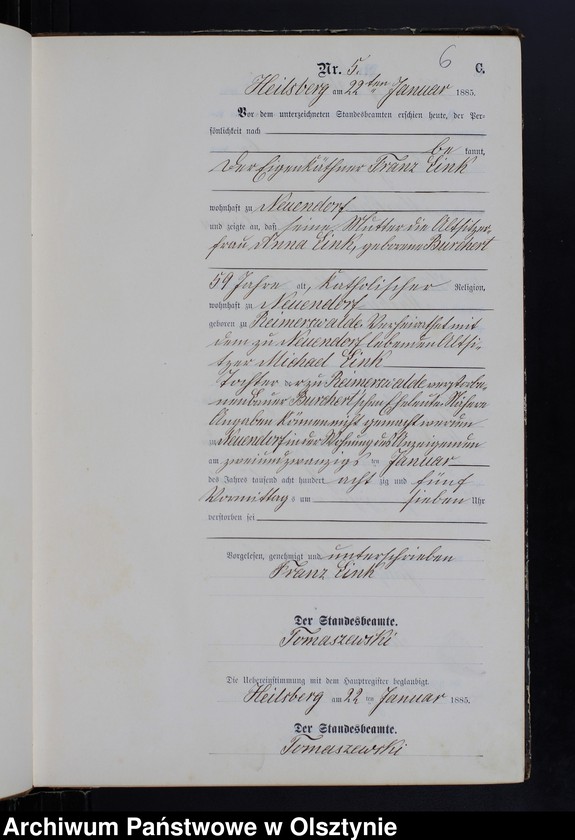 6
Nr. 5. C.
Heilsberg am 22ten Januar 1885.
Vor dem unterzeichneten Standesbeamten erschien heute, der Per-
sönlichkeit nach
be kannt,
der Eigenkäthner Franz Link
wohnhaft zu Neuendorf
und zeigte an, daß seine Mutter die Altsitzer-
frau Anna Link, geborene Burchert
59 Jahre alt, katholischer Religion,
wohnhaft zu Neuendorf
geboren zu Reimerswalde, verheirathet mit
dem zu Neuendorf lebenden Altsi-
tzer Michael Link
Tochter der zu Reimerswalde verstorbe-
nen Bauer Burchert'schen Eheleute. Nähere
Angaben können nicht gemacht werden
zu Neuendorf in der Wohnung des Anzeigenden
am zweiundzwanzigs ten Januar
des Jahres tausend acht hundert acht zig und fünf
Vormittag s um sieben Uhr
verstorben sei
Vorgelesen, genehmigt und unterschrieben
Franz Link
Der Standesbeamte.
Tomaszewski
Die Uebereinstimmung mit dem Hauptregister beglaubigt.
Heilsberg am 22 ten Januar 1885.
Der Standesbeamte.
Tomaszewski
Archiwum Państwowe w Olsztynie